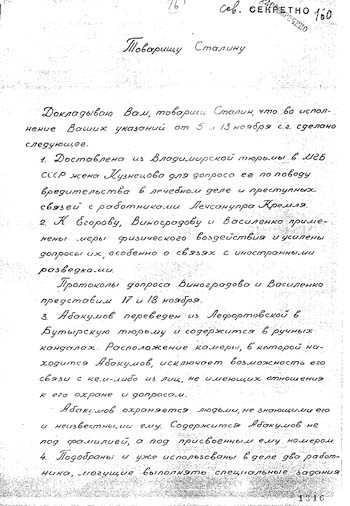 161
Сов. СЕКРЕТНО 160
Товарищу Сталину
Докладываю Вам, товарищ Сталин, что во испол-
нение Ваших указаний от 5 и 13 ноября с.г. сделано
следующее.
1. Доставлена из Владимирской тюрьмы в МГБ
СССР жена Кузнецова для допроса ее по поводу
вредительства в лечебном деле и преступных
связей с работниками Лечсанупра Кремля.
2. К Егорову, Виноградову и Василенко приме-
нены меры физического воздействия и усилены
допросы их, особенно о связях с иностранными
разведками.
Протоколы допроса Виноградова и Василенко
представим 17 и 18 ноября.
3. Абакумов переведен из Лефортовской в
Бутырскую тюрьму и содержится в ручных
кандалах. Расположение камеры, в которой на-
ходится Абакумов, исключает возможность его
связи с кем-либо из лиц, не имеющих отношения
к его охране и допросам.
Абакумов охраняется людьми, не знающими его
и неизвестными ему. Содержится Абакумов не
под фамилией, а под присвоенным ему номером.
4. Подобраны и уже использованы в деле два работ-
ника, могущие выполнять специальные задания